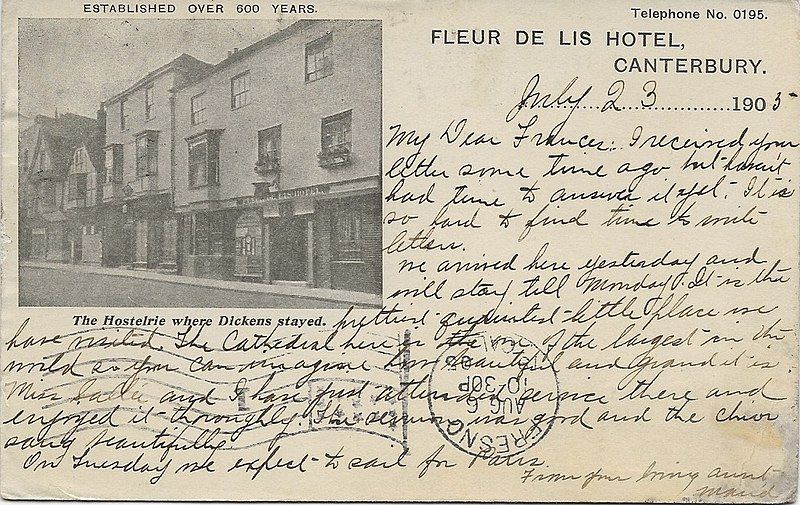 ESTABLISHED OVER 600 YEARS.
Telephone No. 0195.
FLEUR DE LIS HOTEL,
CANTERBURY.
July 23 1905
My Dear Frances: I received your
letter some time ago, but haven't
had time to answer it yet. It is
so hard to find time to write
letters.
We arrived here yesterday and
will stay till Monday. It is the
The Hostelrie where Dickens stayed.
prettiest quaintest little place we
have visited. The Cathedral here is the one of the largest in the
world so you can imagine how beautiful and grand it is.
Miss Sallie and I have just attended service there and
enjoyed it throughly. The sermon was good and the choir
sang beautifully.
On Tuesday we expect to sail for Paris.
From your loving aunt
Maud
FRESNO
AUG 6
10-30P
1905
CAL.